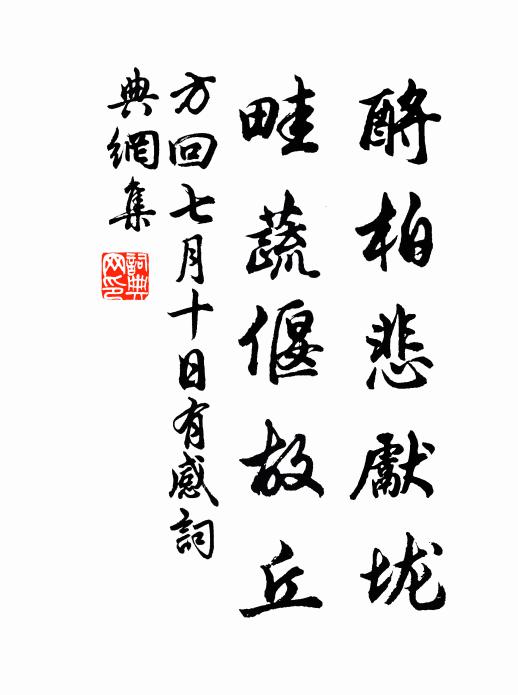 酹柏悲獻垅
畦蔬偃故丘
方回七月十日有感詞
典網集
詞典
网印